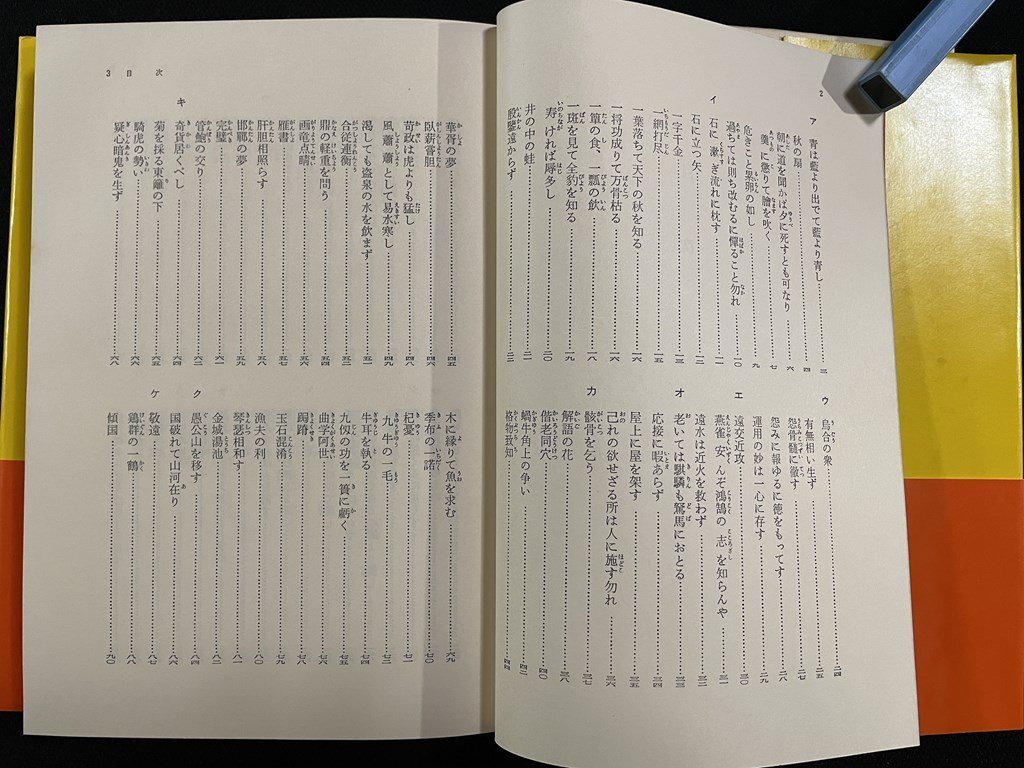 2
ア
青は藍より出でて藍より青し……三
秋の扇……四
朝に道を聞かば夕に死すとも可なり……六
羹に懲りて膾を吹く……七
危きこと累卵の如し……九
過ちては則ち改むるに憚ること勿れ……一〇
イ
石に漱ぎ流れに枕す……一一
石に立つ矢……一二
一字千金……一三
一網打尽……一五
一葉落ちて天下の秋を知る……一六
一将功成りて万骨枯る……一六
一簞の食、一瓢の飲……一八
一斑を見て全豹を知る……一九
寿ければ辱多し……二〇
井の中の蛙……二一
殷鑒遠からず……二二
ウ
烏合の衆……二四
有無相い生ず……二五
怨骨髄に徹す……二七
怨みに報ゆるに徳をもってす……二八
運用の妙は一心に存す……二九
エ
遠交近攻……三〇
燕雀安んぞ鴻鵠の志を知らんや……三一
遠水は近火を救わず……三二
オ
老いては騏驎も駑馬におとる……三三
応接に暇あらず……三四
屋上に屋を架す……三五
己れの欲せざる所は人に施す勿れ……三六
カ
骸骨を乞う……三七
解語の花……三八
偕老同穴……四〇
蝸牛角上の争い……四二
格物致知……四四
3 目 次
華胥の夢……四五
臥薪嘗胆……四六
苛政は虎よりも猛し……四八
風蕭蕭として易水寒し……四九
渇しても盗泉の水を飲まず……五一
合従連衡……五二
鼎の軽重を問う……五四
画竜点睛……五六
雁書……五七
肝胆相照らす……五八
邯鄲の夢……五九
完璧……六一
管鮑の交り……六二
キ
奇貨居くべし……六四
菊を採る東籬の下……六五
騎虎の勢い……六六
疑心暗鬼を生ず……六八
木に縁りて魚を求む……六九
季布の一諾……七〇
杞憂……七一
九牛の一毛……七二
牛耳を執る……七四
九仭の功を一簣に虧く……七五
曲学阿世……七六
跼蹐……七八
玉石混淆……七九
漁夫の利……八〇
琴瑟相和す……八一
金城湯池……八二
ク
愚公山を移す……八四
国破れて山河在り……八六
ケ
敬遠……八七
鶏群の一鶴……八八
傾国……九〇